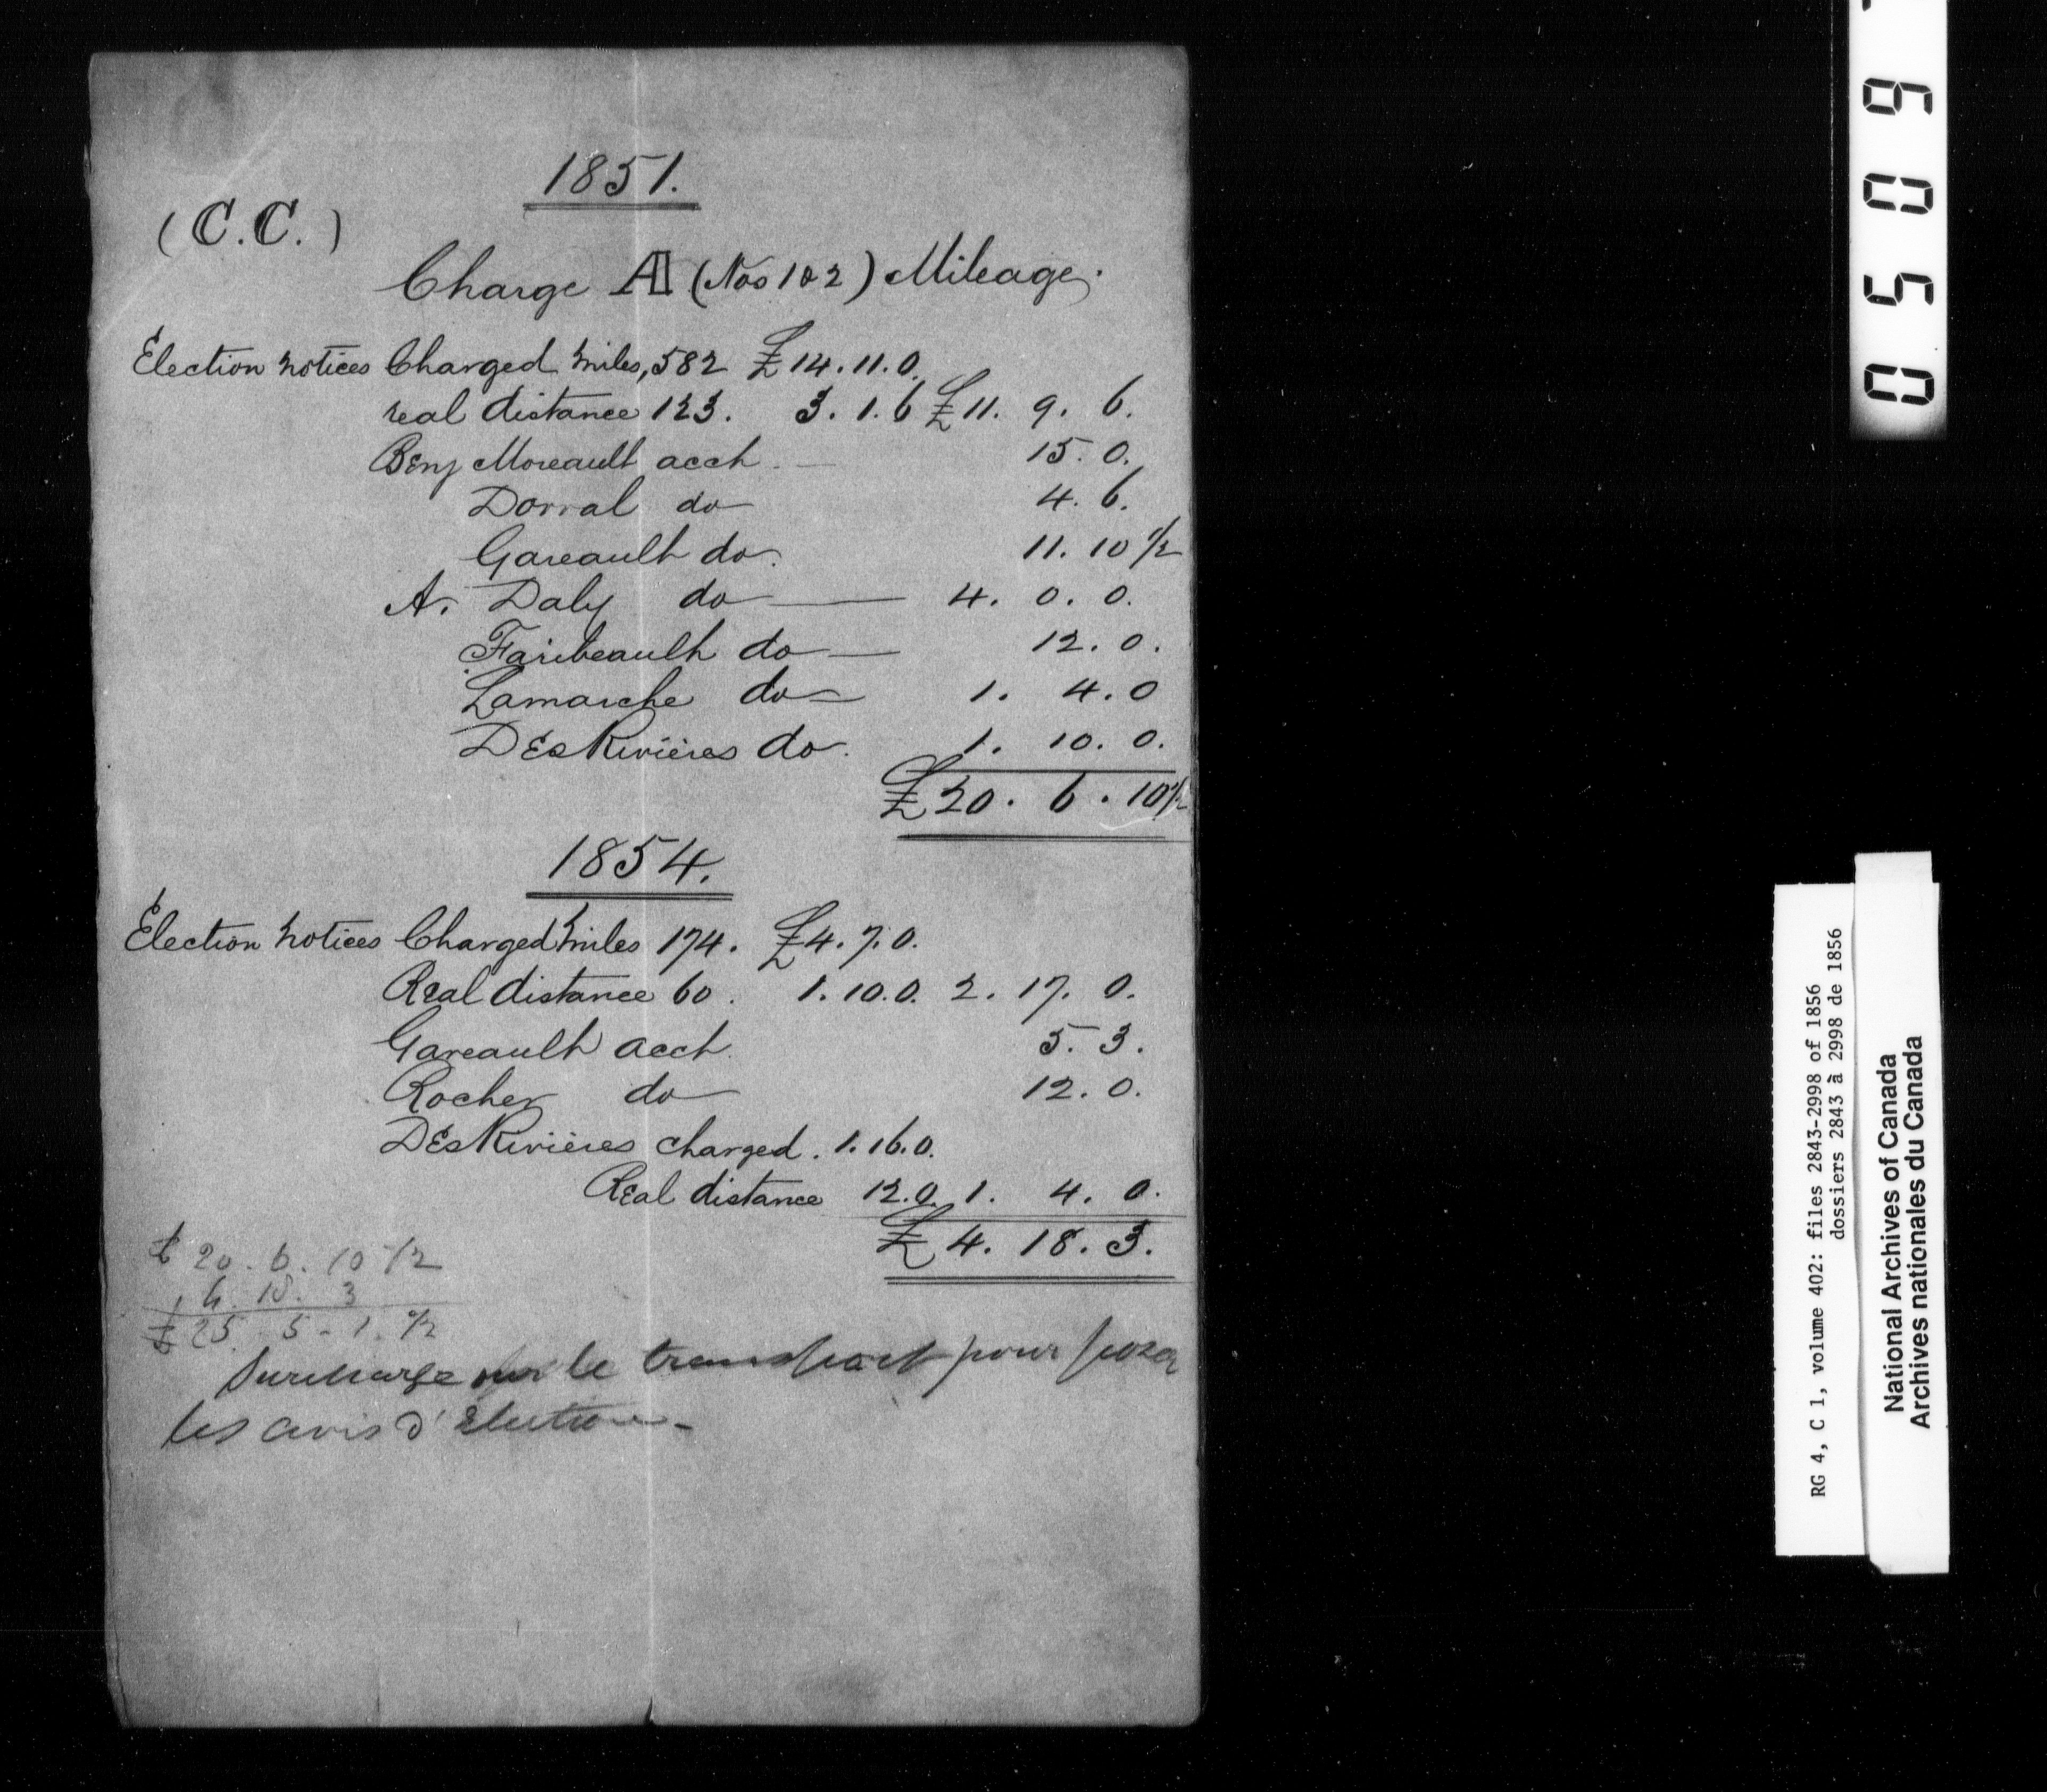 1851.
(C.C.)
Charge A (Nos 1 & 2) Mileage.
Election notices Charged miles, 582 £14.11.0.
real distance 123. 3.1.6 £11. 9. 6.
Benj Moreault acct. — 15. 0.
Dorral do 4. 6.
Gareault do. 11. 10 1/2
A. Daly do — 4. 0. 0.
Faribeault do — 12. 0.
Lamarche do — 1. 4. 0
DesRivières do. 1. 10. 0.
£20. 6. 10 1/2
1854.
Election notices Charged miles 174. £4.7.0.
Real distance 60. 1.10.0. 2. 17. 0.
Gareault acct. 5. 3.
Rocher do 12. 0.
DesRivières charged. 1.16.0.
Real distance 12.0. 1. 4. 0.
£4. 18. 3.
£ 20. 6. 10 1/2
4. 18. 3
£ 25. 5 - 1. 1/2
Surcharge sur le transport pour poser
les avis d'Election -
0509
RG 4, C 1, volume 402: files 2843-2998 of 1856
dossiers 2843 à 2998 de 1856
National Archives of Canada
Archives nationales du Canada